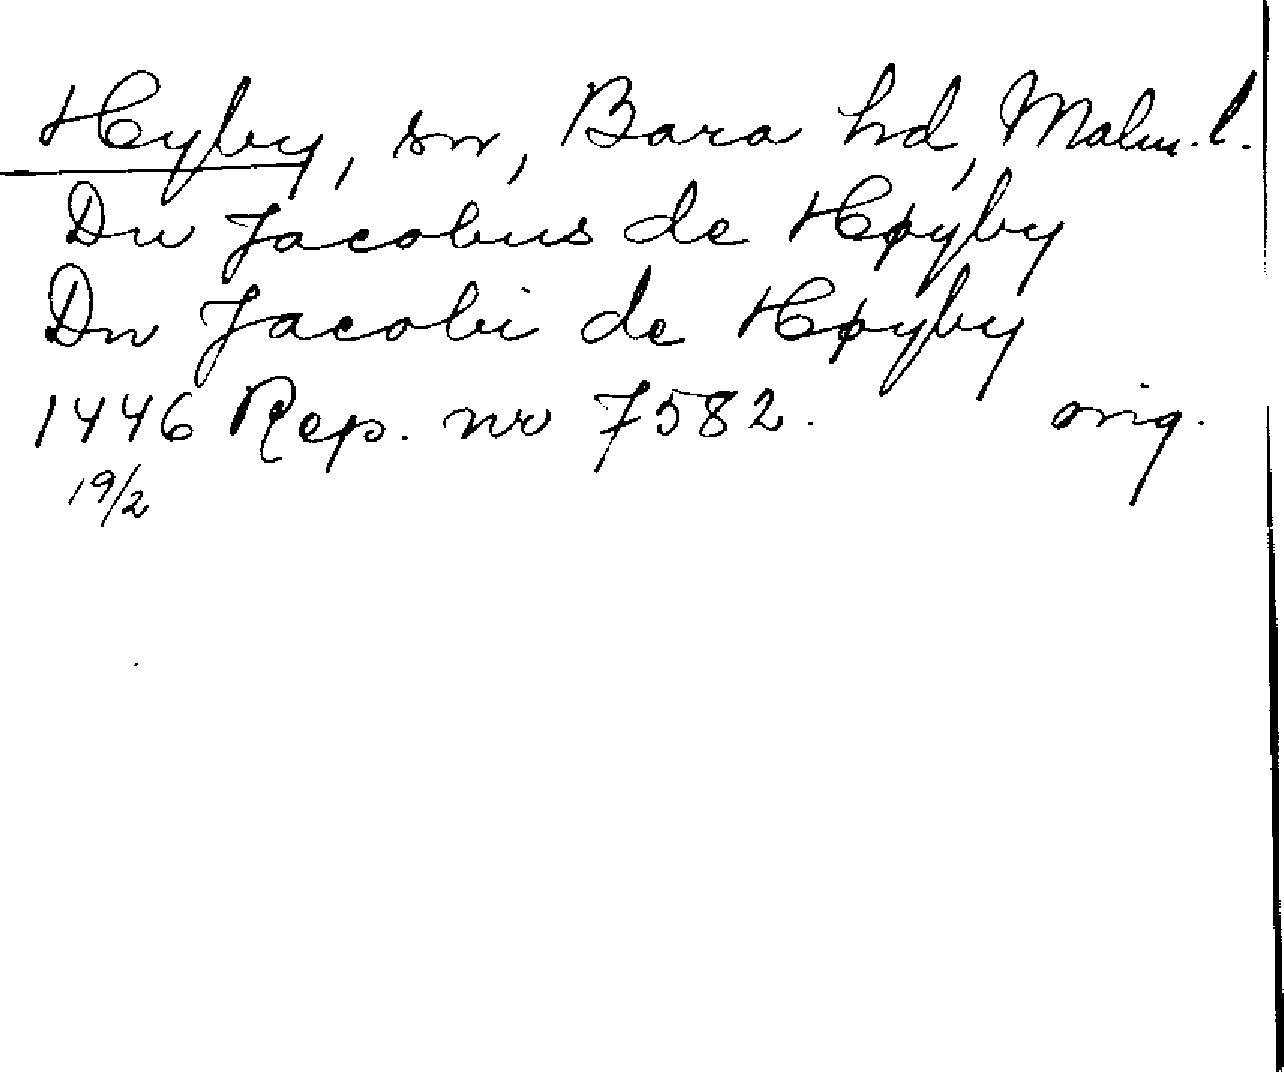 Hyby, sn, Bara hd, Malm. l.
Dn Jacobus de Høyby
Dn Jacobi de Høyby
1446 Rep. nr 7582. orig.
19/2